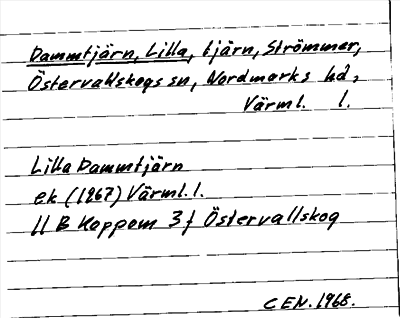 Dammtjärn, Lilla, tjärn, Strömmer,
Östervallskogs sn, Nordmarks hd,
Värml. l.
Lilla Dammtjärn
ek (1967) Värml. l.
11 B Koppom 3 f Östervallskog
C EN. 1968.